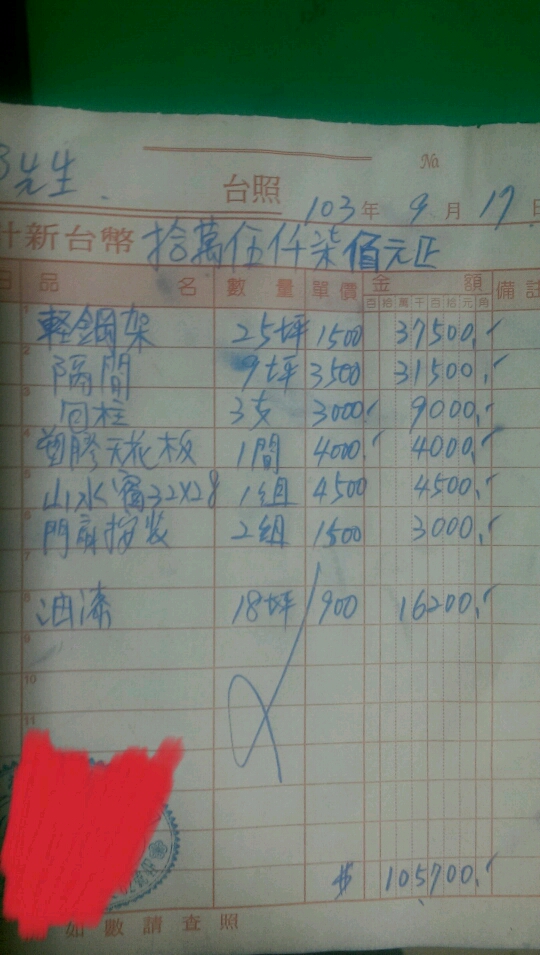 No
先生
台照
103年 9月 17日
計新台幣 拾萬伍仟柒佰元正
品名 數量 單價 金額 備註
百 拾 萬 千 百 拾 元 角
1 軽鋼架 25坪 1500 37500.
2 隔間 9坪 3500 31500.
3 回柱 3支 3000. 9000.
4 塑膠天花板 1間 4000. 4000.
5 山水窗32X28 1組 4500 4500.
6 門扇按裝 2組 1500 3000.
7
8 油漆 18坪 900 16200.
9
10
11
$ 105700.
如數請查照